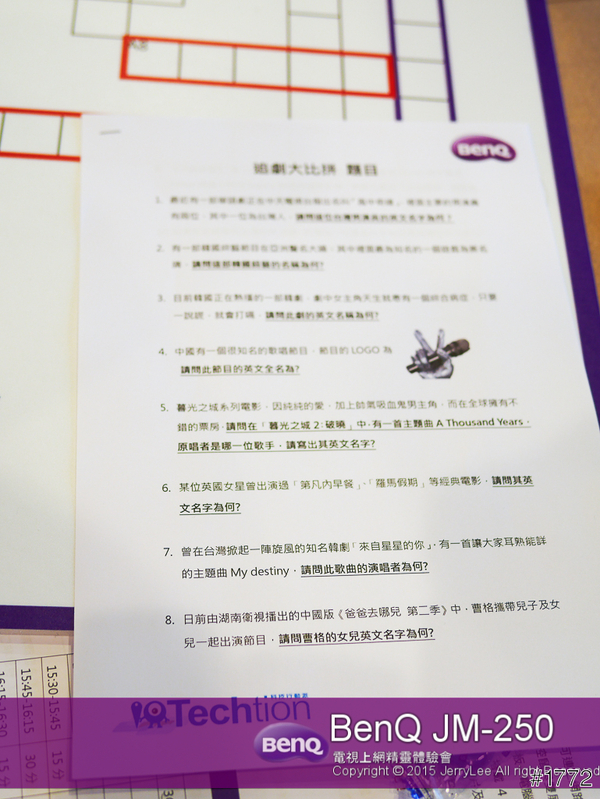 BenQ
追劇大比拼 題目
請問這部韓國綜藝的名稱為何?
3. 目前韓國正在熱播的一部韓劇，劇中女主角天生就患有一個綜合病症，只要
一說謊，就會打嗝，請問此劇的英文名稱為何?
4. 中國有一個很知名的歌唱節目，節目的 LOGO 為
請問此節目的英文全名為?
5. 暮光之城系列電影，因純純的愛，加上帥氣吸血鬼男主角，而在全球擁有不
錯的票房，請問在「暮光之城 2：破曉」中，有一首主題曲 A Thousand Years，
原唱者是哪一位歌手，請寫出其英文名字?
6. 某位英國女星曾出演過「第凡內早餐」、「羅馬假期」等經典電影，請問其英
文名字為何?
7. 曾在台灣掀起一陣旋風的知名韓劇「來自星星的你」，有一首讓大家耳熟能詳
的主題曲 My destiny，請問此歌曲的演唱者為何?
8. 日前由湖南衛視播出的中國版《爸爸去哪兒 第二季》中，曹格攜帶兒子及女
兒一起出演節目，請問曹格的女兒英文名字為何?
15:30-15:45
15 分
15:45-16:15
30 分
16:15-16:30
15 分
Techtion
BenQ
BenQ JM-250
電視上網精靈體驗會
Copyright © 2015 JerryLee All right Reserved
#1772